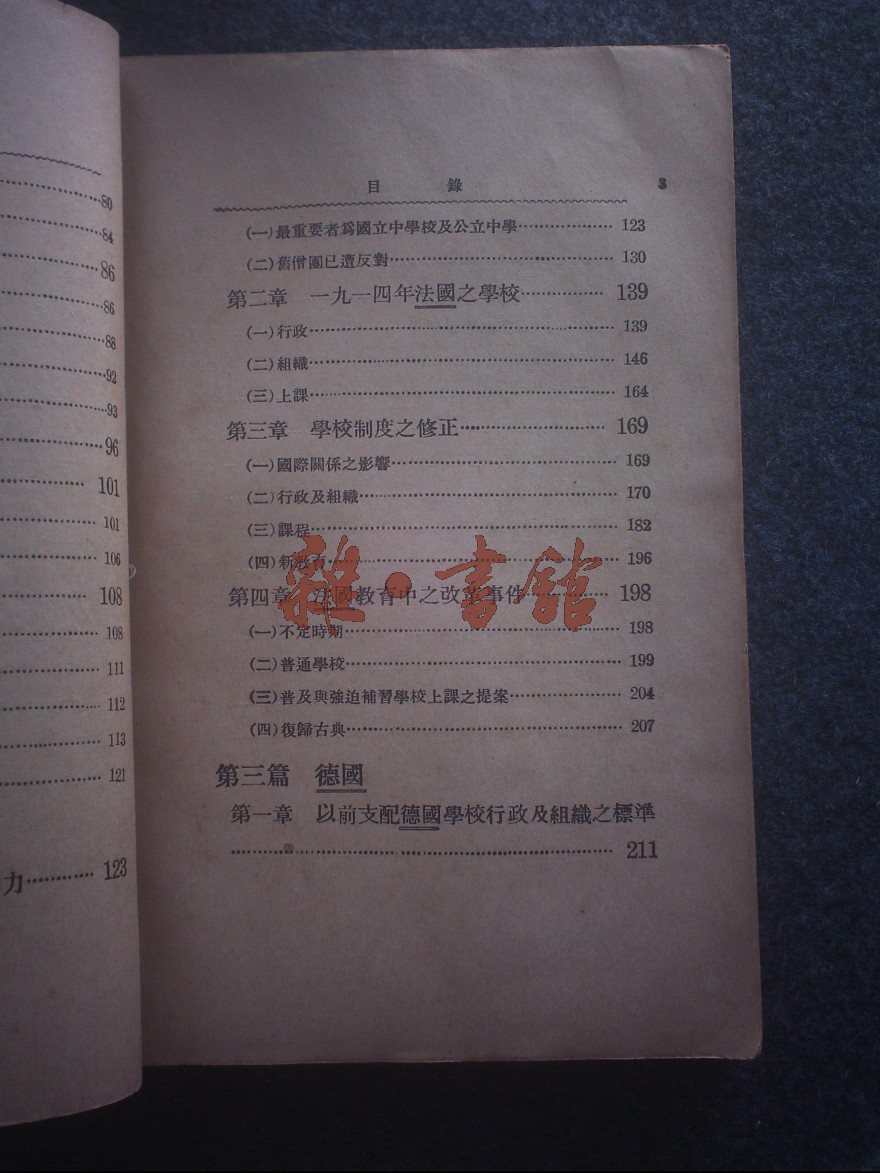 80
84
86
86
88
92
93
96
101
101
106
108
108
111
112
113
121
力………… 123
目 錄 3
(一)最重要者爲國立中學校及公立中學……………… 123
(二)舊僧團已遭反對……………… 130
第二章 一九一四年法國之學校…………… 139
(一)行政……………… 139
(二)組織……………… 146
(三)上課……………… 164
第三章 學校制度之修正……………… 169
(一)國際關係之影響……………… 169
(二)行政及組織……………… 170
(三)課程……………… 182
(四)新教育……………… 196
第四章 法國教育中之改革事件………… 198
(一)不定時期……………… 198
(二)普通學校……………… 199
(三)普及與強迫補習學校上課之提案………… 204
(四)復歸古典……………… 207
第三篇 德國
第一章 以前支配德國學校行政及組織之標準
……………… 211
雜·書館